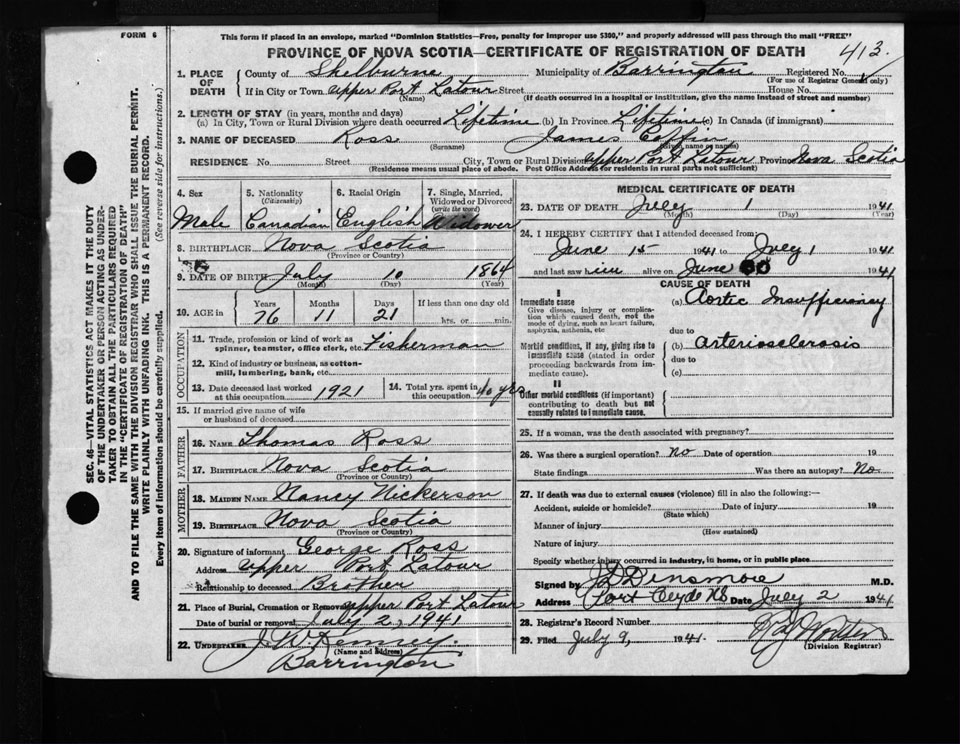 FORM 6
This form if placed in an envelope, marked "Dominion Statistics—Free, penalty for improper use $300," and properly addressed will pass through the mail "FREE"
PROVINCE OF NOVA SCOTIA—CERTIFICATE OF REGISTRATION OF DEATH
413
1. PLACE OF DEATH
County of Shelburne Municipality of Barrington Registered No.
(For use of Registrar General only)
If in City or Town Upper Port Latour Street House No.
(Name) (If death occurred in a hospital or institution, give the name instead of street and number)
2. LENGTH OF STAY (in years, months and days)
(a) In City, Town or Rural Division where death occurred Lifetime (b) In Province Lifetime (c) In Canada (if immigrant)
3. NAME OF DECEASED Ross James Coffin
(Surname) (Given name or names)
RESIDENCE No. Street City, Town or Rural Division Upper Port Latour Province Nova Scotia
(Residence means usual place of abode. Post Office Address for residents in rural parts not sufficient)
4. Sex 5. Nationality (Citizenship) 6. Racial Origin 7. Single, Married, Widowed or Divorced (write the word)
Male Canadian English Widower
8. BIRTHPLACE Nova Scotia
(Province or Country)
9. DATE OF BIRTH July 10 1864
(Month) (Day) (Year)
10. AGE IN Years Months Days If less than one day old
76 11 21 hrs. or min.
OCCUPATION
11. Trade, profession or kind of work as spinner, teamster, office clerk, etc. Fisherman
12. Kind of industry or business, as cotton-mill, lumbering, bank, etc.
13. Date deceased last worked at this occupation 1921 14. Total yrs. spent in this occupation 40 yrs
15. If married give name of wife or husband of deceased
FATHER
16. NAME Thomas Ross
17. BIRTHPLACE Nova Scotia
(Province or Country)
MOTHER
18. MAIDEN NAME Nancy Nickerson
19. BIRTHPLACE Nova Scotia
(Province or Country)
20. Signature of informant George Ross
Address Upper Port Latour
Relationship to deceased Brother
21. Place of Burial, Cremation or Removal Upper Port Latour
Date of burial or removal July 2, 1941
22. UNDERTAKER J. W. Kenney.
(Name and address)
Barrington
MEDICAL CERTIFICATE OF DEATH
23. DATE OF DEATH July 1 1941
(Month) (Day) (Year)
24. I HEREBY CERTIFY that I attended deceased from:
June 15 1941 to July 1 1941
and last saw him alive on June 1941
CAUSE OF DEATH
I
Immediate cause
Give disease, injury or complication which caused death, not the mode of dying, such as heart failure, asphyxia, asthenia, etc
(a) Aortic Insufficiency
due to
Morbid conditions, if any, giving rise to immediate cause (stated in order proceeding backwards from immediate cause).
(b) Arteriosclerosis
due to
(c)
II
Other morbid conditions (if important) contributing to death but not causally related to immediate cause.
25. If a woman, was the death associated with pregnancy?
26. Was there a surgical operation? No Date of operation 19
State findings Was there an autopsy? No
27. If death was due to external causes (violence) fill in also the following:—
Accident, suicide or homicide? Date of injury 19
(State which)
Manner of injury
(How sustained)
Nature of injury
Specify whether injury occurred in industry, in home, or in public place
Signed by Dinsmore M.D.
Address Port Clyde NS Date July 2 1941
28. Registrar's Record Number
29. Filed July 9, 1941.
(Division Registrar)
SEC. 46—VITAL STATISTICS ACT MAKES IT THE DUTY
OF THE UNDERTAKER OR PERSON ACTING AS UNDER-
TAKER TO OBTAIN ALL THE PARTICULARS REQUIRED
IN THE "CERTIFICATE OF REGISTRATION OF DEATH"
AND TO FILE THE SAME WITH THE DIVISION REGISTRAR WHO SHALL ISSUE THE BURIAL PERMIT.
WRITE PLAINLY WITH UNFADING INK. THIS IS A PERMANENT RECORD.
Every item of information should be carefully supplied. (See reverse side for instructions.)